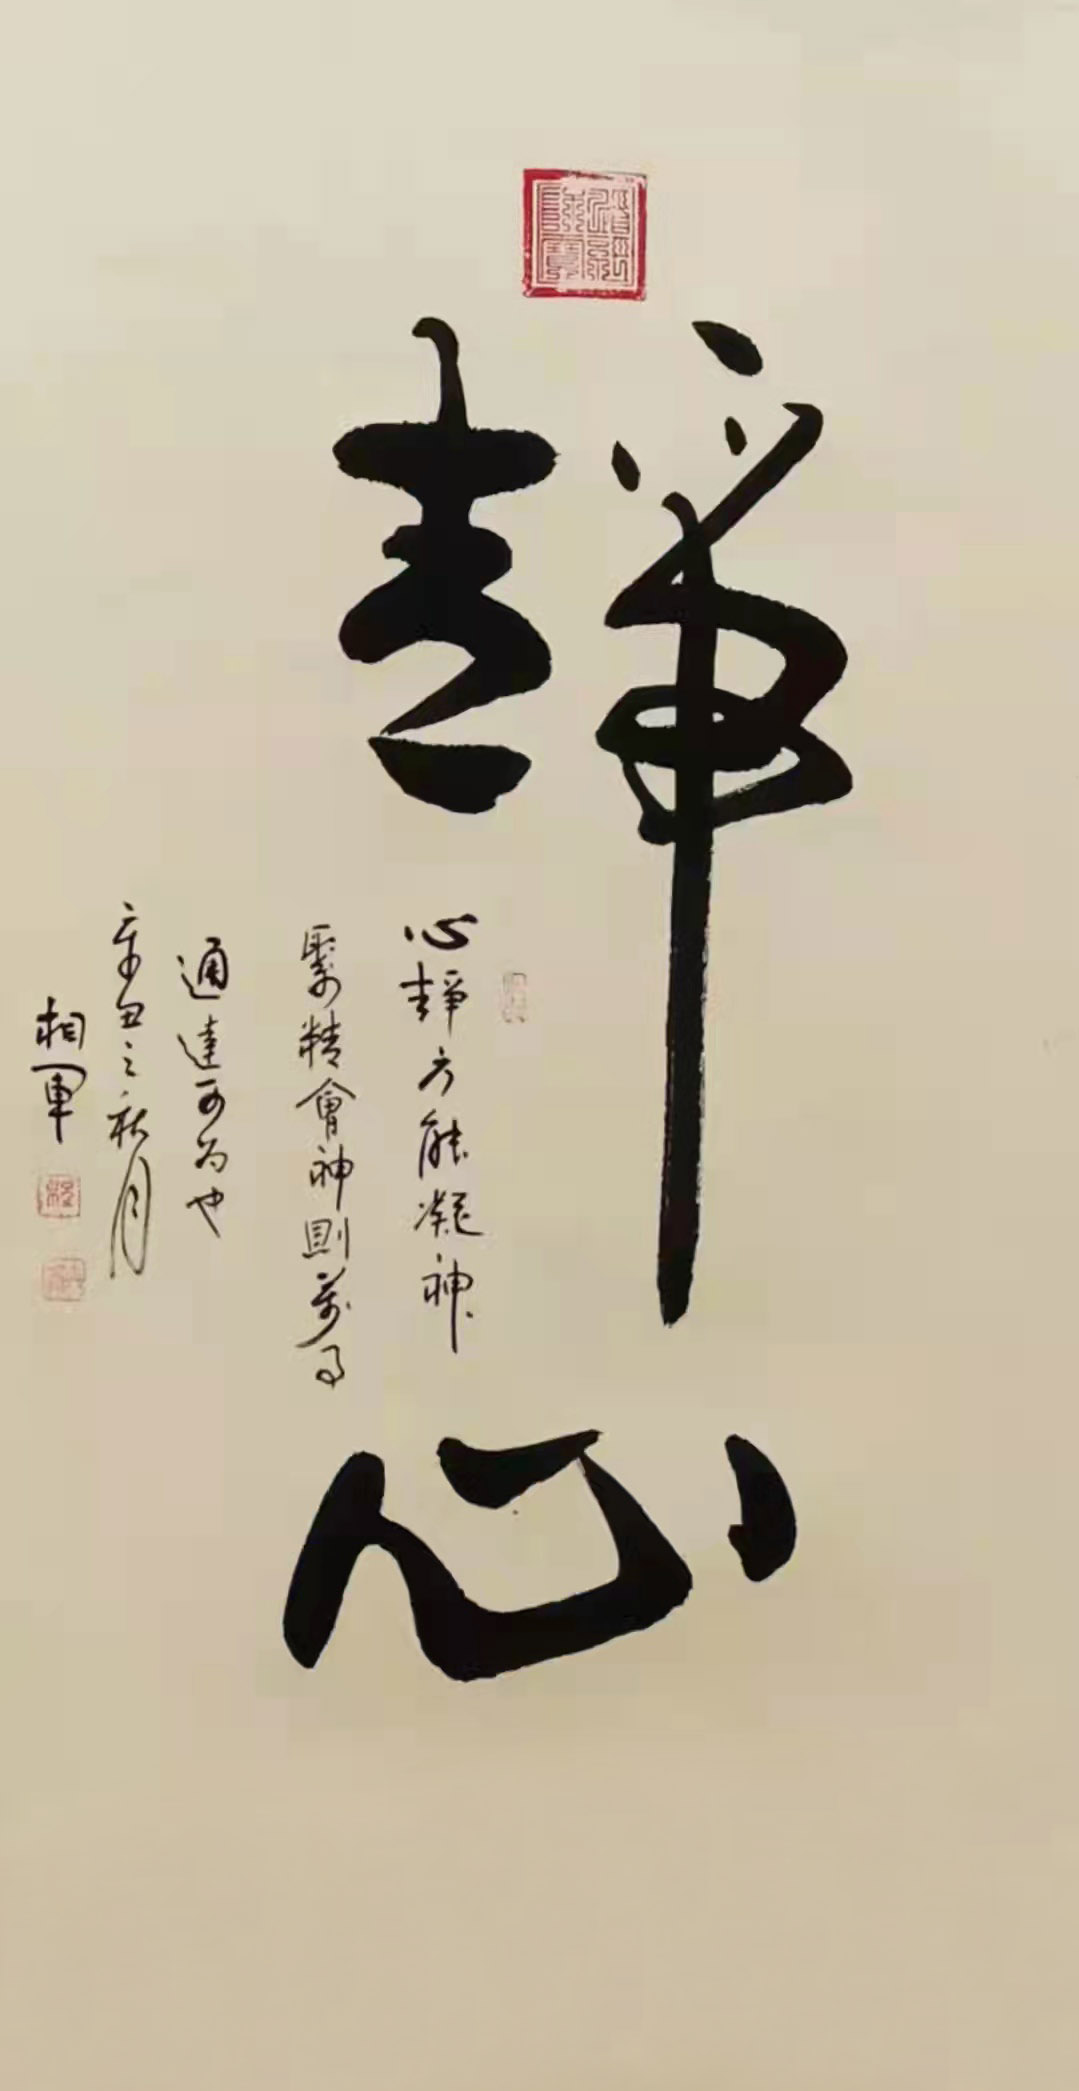 靜
心
心靜方能凝神
聚精會神則萬事
通達可為也
辛丑之秋月
相軍